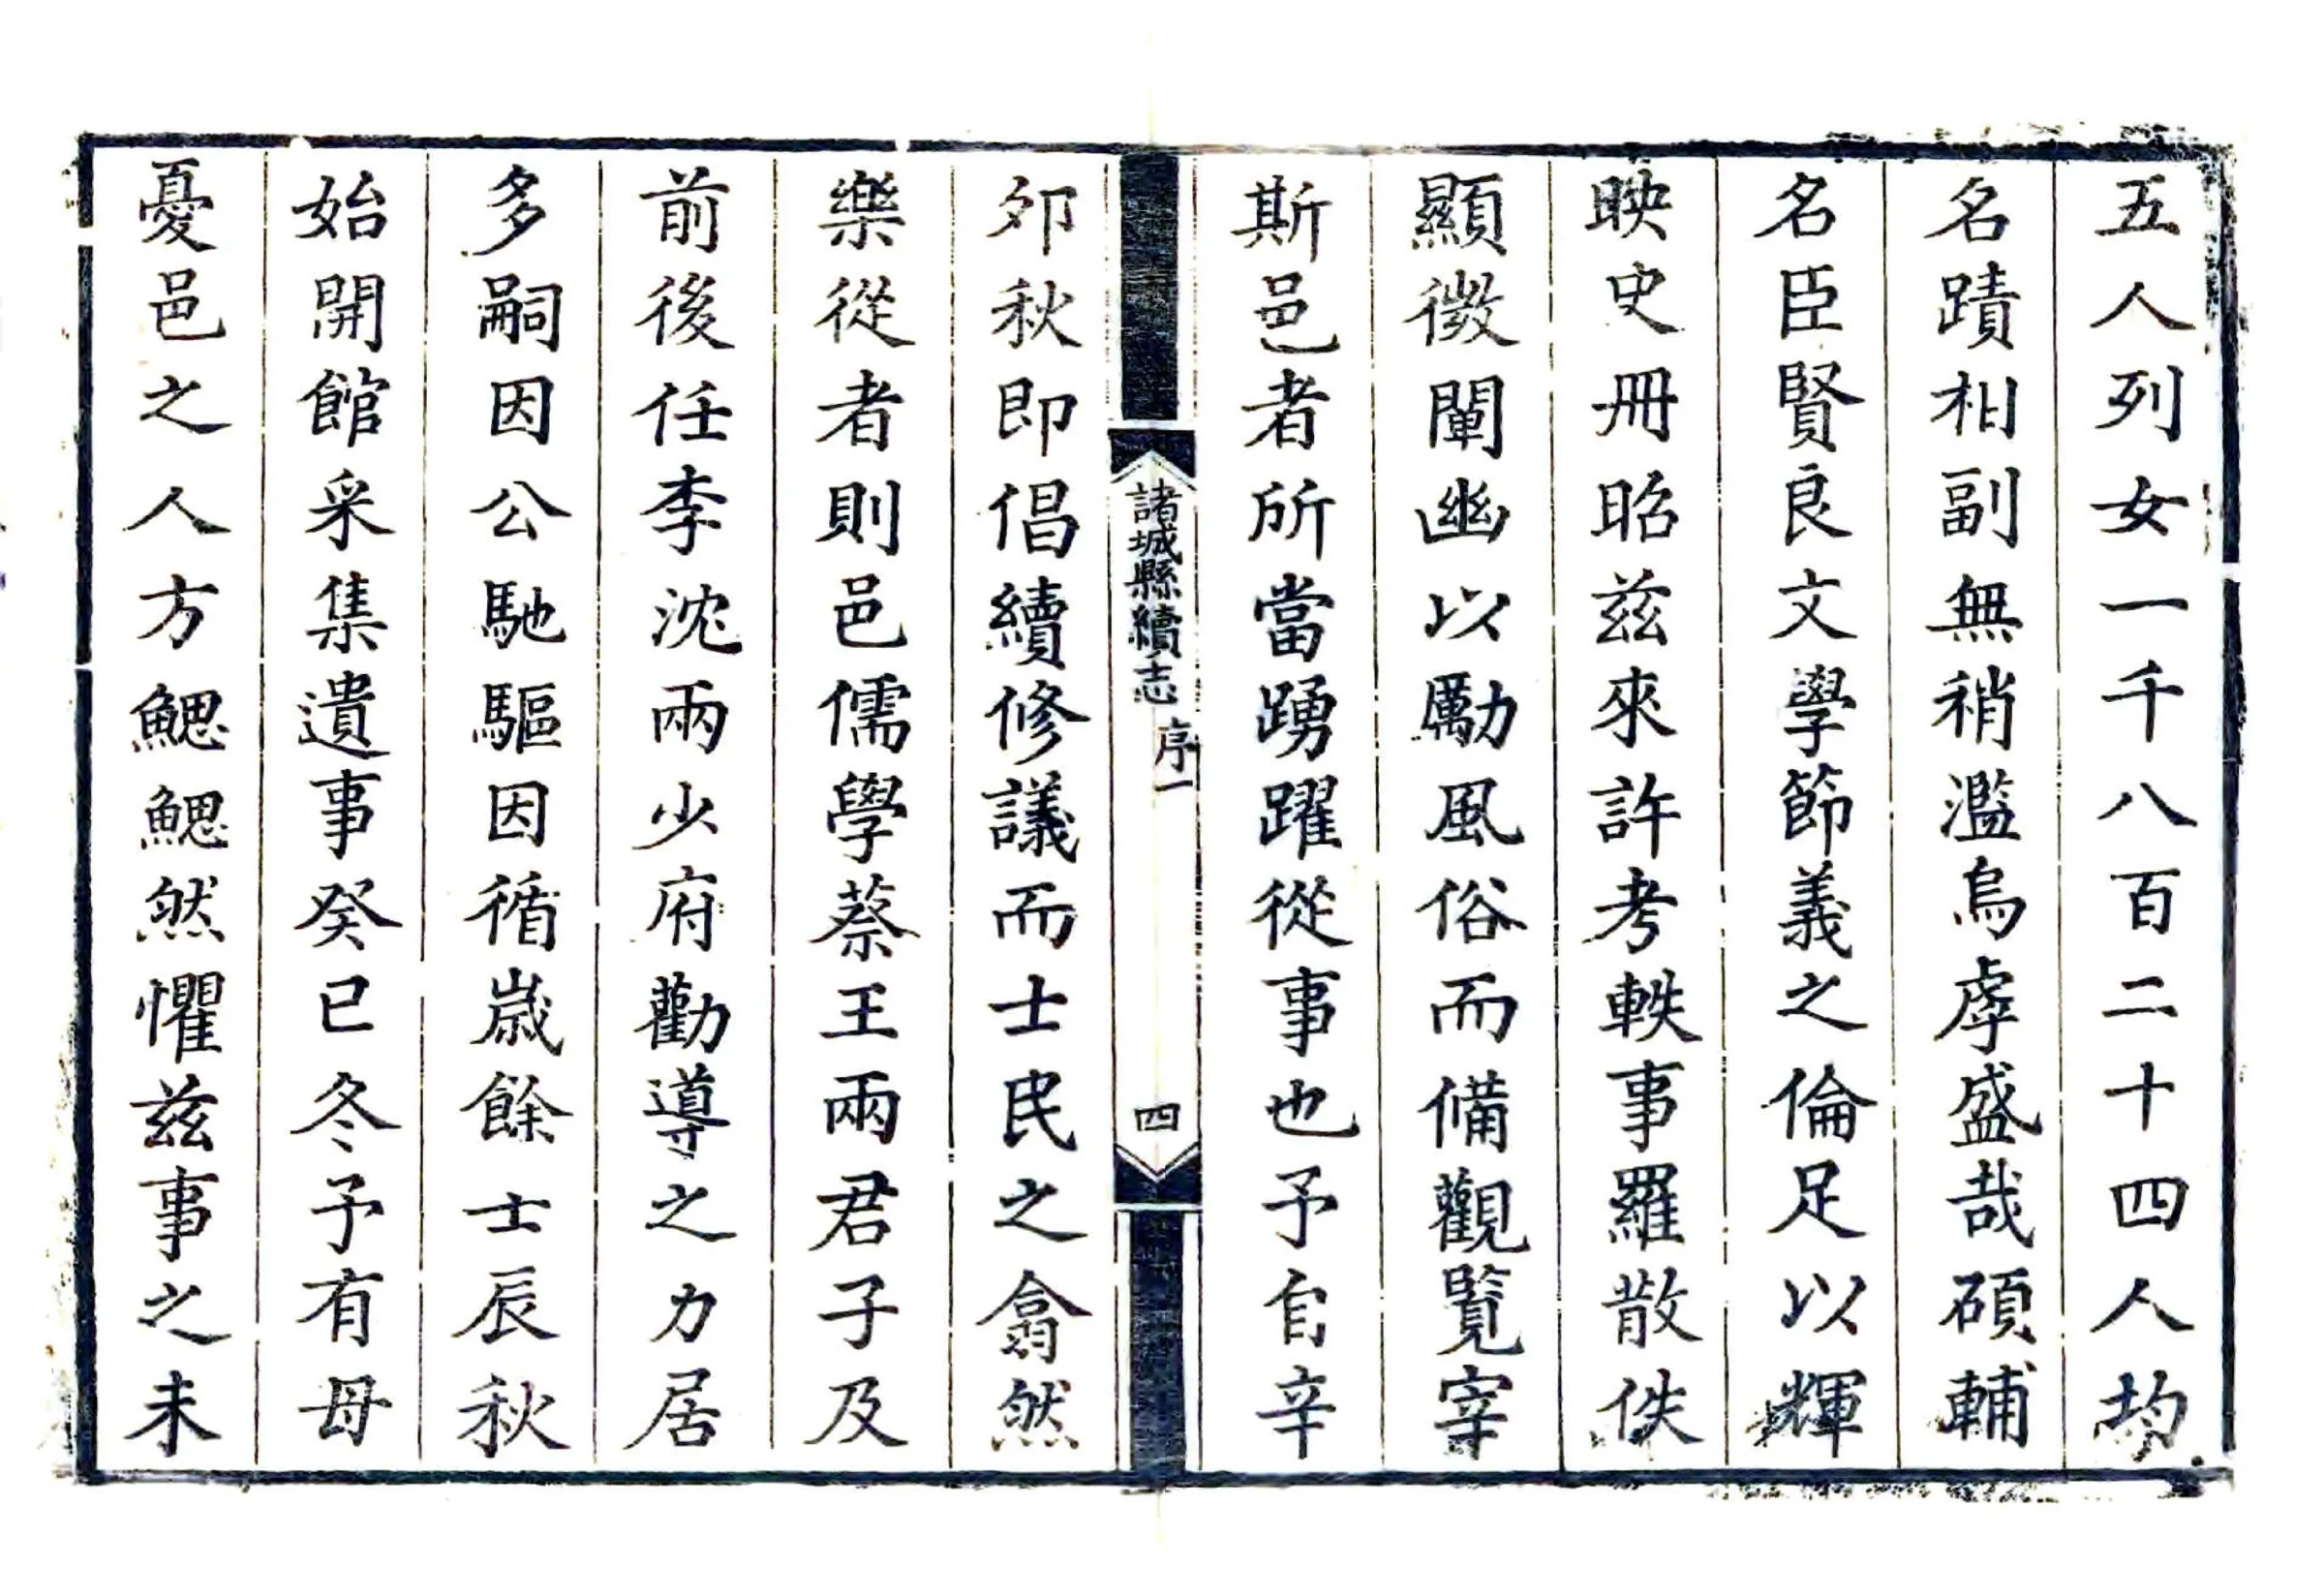 五人列女一千八百二十四人均
名蹟相副無稍濫烏虖盛哉碩輔
名臣賢良文學節義之倫足以輝
映史冊昭茲來許考軼事羅散佚
顯微闡幽以勵風俗而備觀覽宰
斯邑者所當踴躍從事也予自辛
諸城縣續志 序一 四
夘秋即倡續修議而士民之翕然
樂從者則邑儒學蔡王兩君子及
前後任李沈兩少府勸導之力居
多嗣因公馳驅因循歲餘士辰秋
始開館采集遺事癸巳冬予有母
憂邑之人方鰓鰓然懼茲事之未